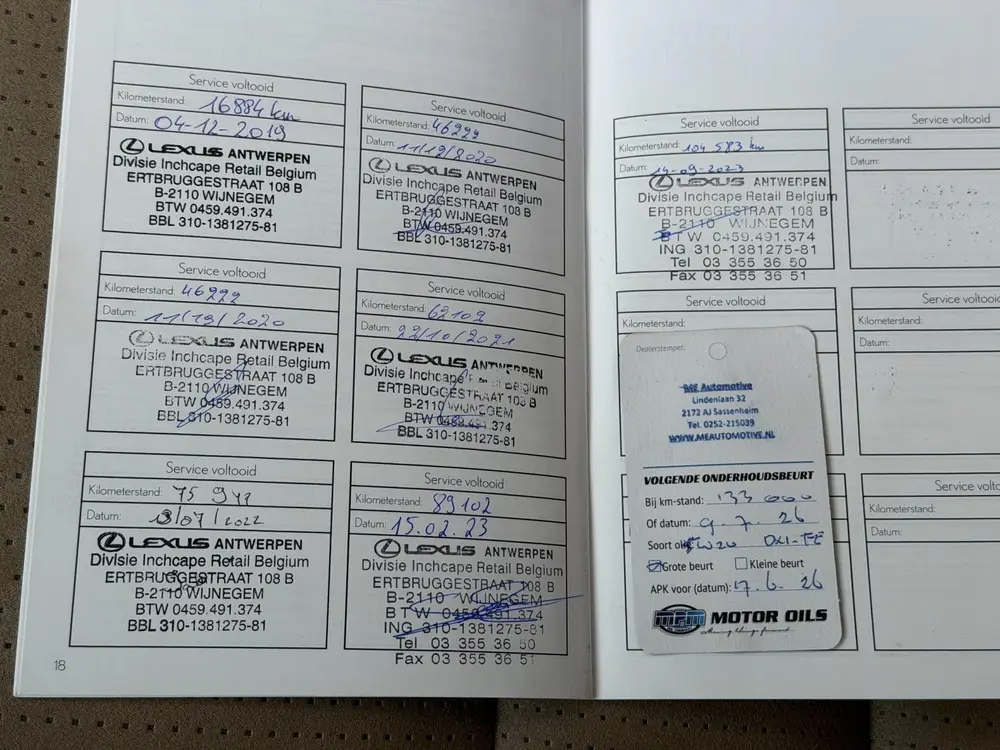 Service voltooid
Kilometerstand: 16884 km
Datum: 04-12-2019
LEXUS ANTWERPEN
Divisie Inchcape Retail Belgium
ERTBRUGGESTRAAT 108 B
B-2110 WIJNEGEM
BTW 0459.491.374
BBL 310-1381275-81
Service voltooid
Kilometerstand: 46222
Datum: 11/12/2020
LEXUS ANTWERPEN
Divisie Inchcape Retail Belgium
ERTBRUGGESTRAAT 108 B
B-2110 WIJNEGEM
BTW 0459.491.374
BBL 310-1381275-81
Service voltooid
Kilometerstand: 46222
Datum: 11/12/2020
LEXUS ANTWERPEN
Divisie Inchcape Retail Belgium
ERTBRUGGESTRAAT 108 B
B-2110 WIJNEGEM
BTW 0459.491.374
BBL 310-1381275-81
Service voltooid
Kilometerstand: 62102
Datum: 22/10/2021
LEXUS ANTWERPEN
Divisie Inchcape Retail Belgium
ERTBRUGGESTRAAT 108 B
B-2110 WIJNEGEM
BTW 0459.491.374
BBL 310-1381275-81
Service voltooid
Kilometerstand: 75 942
Datum: 13/07/2022
LEXUS ANTWERPEN
Divisie Inchcape Retail Belgium
ERTBRUGGESTRAAT 108 B
B-2110 WIJNEGEM
BTW 0459.491.374
BBL 310-1381275-81
Service voltooid
Kilometerstand: 89102
Datum: 15.02.23
LEXUS ANTWERPEN
Divisie Inchcape Retail Belgium
ERTBRUGGESTRAAT 108 B
B-2110 WIJNEGEM
BTW 0459.491.374
ING 310-1381275-81
Tel 03 355 36 50
Fax 03 355 36 51
18
Service voltooid
Kilometerstand: 104 583 km
Datum: 14-09-2023
LEXUS ANTWERPEN
Divisie Inchcape Retail Belgium
ERTBRUGGESTRAAT 108 B
B-2110 WIJNEGEM
BTW 0459.491.374
ING 310-1381275-81
Tel 03 355 36 50
Fax 03 355 36 51
Service voltooid
Kilometerstand:
Datum:
Service voltooid
Kilometerstand:
Service voltooid
Kilometerstand:
Datum:
Service voltooid
Kilometerstand:
Datum:
Dealerstempel:
ME Automotive
Lindenlaan 32
2172 AJ Sassenheim
Tel. 0252-215039
WWW.MEAUTOMOTIVE.NL
VOLGENDE ONDERHOUDSBEURT
Bij km-stand: 133 000
Of datum: 9. 7. 26
Soort olie: 0W20 OXI-TE
Grote beurt Kleine beurt
APK voor (datum): 17. 6. 26
MPM MOTOR OILS
Moving things forward